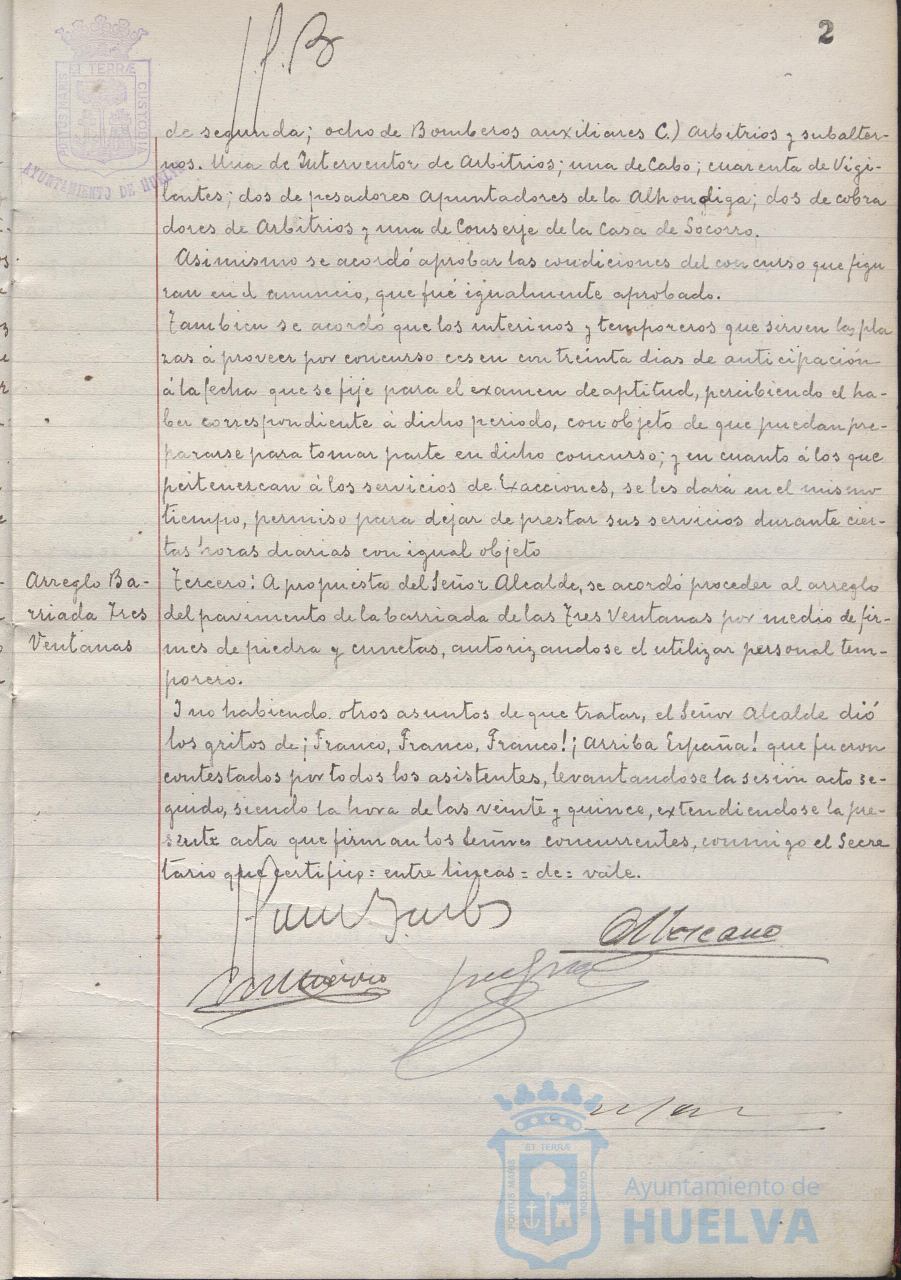 2
ET TERRÆ
PORTUS MARIS
CUSTODIA
AYUNTAMIENTO DE HUELVA
de segunda; ocho de Bomberos auxiliares C.) Arbitrios y subalter-
nos. Una de Interventor de Arbitrios; una de Cabo; cuarenta de Vigi-
lantes; dos de pesadores apuntadores de la Alhondiga; dos de cobra
dores de Arbitrios y una de Conserje de la Casa de Socorro.
Asimismo se acordó aprobar las condiciones del concurso que figu
ran en el anuncio, que fué igualmente aprobado.
Tambien se acordó que los interinos y temporeros que sirven las pla
zas á proveer por concurso cesen con treinta dias de anticipación
á la fecha que se fije para el examen de aptitud, percibiendo el ha-
ber correspondiente á dicho periodo, con objeto de que puedan pre-
pararse para tomar parte en dicho concurso; y en cuanto á los que
pertenezcan á los servicios de Exacciones, se les dará en el mismo
tiempo, permiso para dejar de prestar sus servicios durante cier-
tas horas diarias con igual objeto
Arreglo Ba-
rriada Tres
Ventanas
Tercero: A propuesta del Señor Alcalde, se acordó proceder al arreglo
del pavimento de la barriada de las Tres Ventanas por medio de fir-
mes de piedra y cunetas, autorizandose el utilizar personal tem-
porero.
Y no habiendo otros asuntos de que tratar, el Señor Alcalde dió
los gritos de ¡Franco, Franco, Franco! ¡Arriba España! que fueron
contestados por todos los asistentes, levantandose la sesión acto se-
guido, siendo la hora de las veinte y quince, extendiendose la pre-
sente acta que firman los Señores concurrentes, conmigo el Secre
tario que certifico = entre lineas = de = vale.
ET TERRÆ
PORTUS MARIS
CUSTODIA
Ayuntamiento de
HUELVA